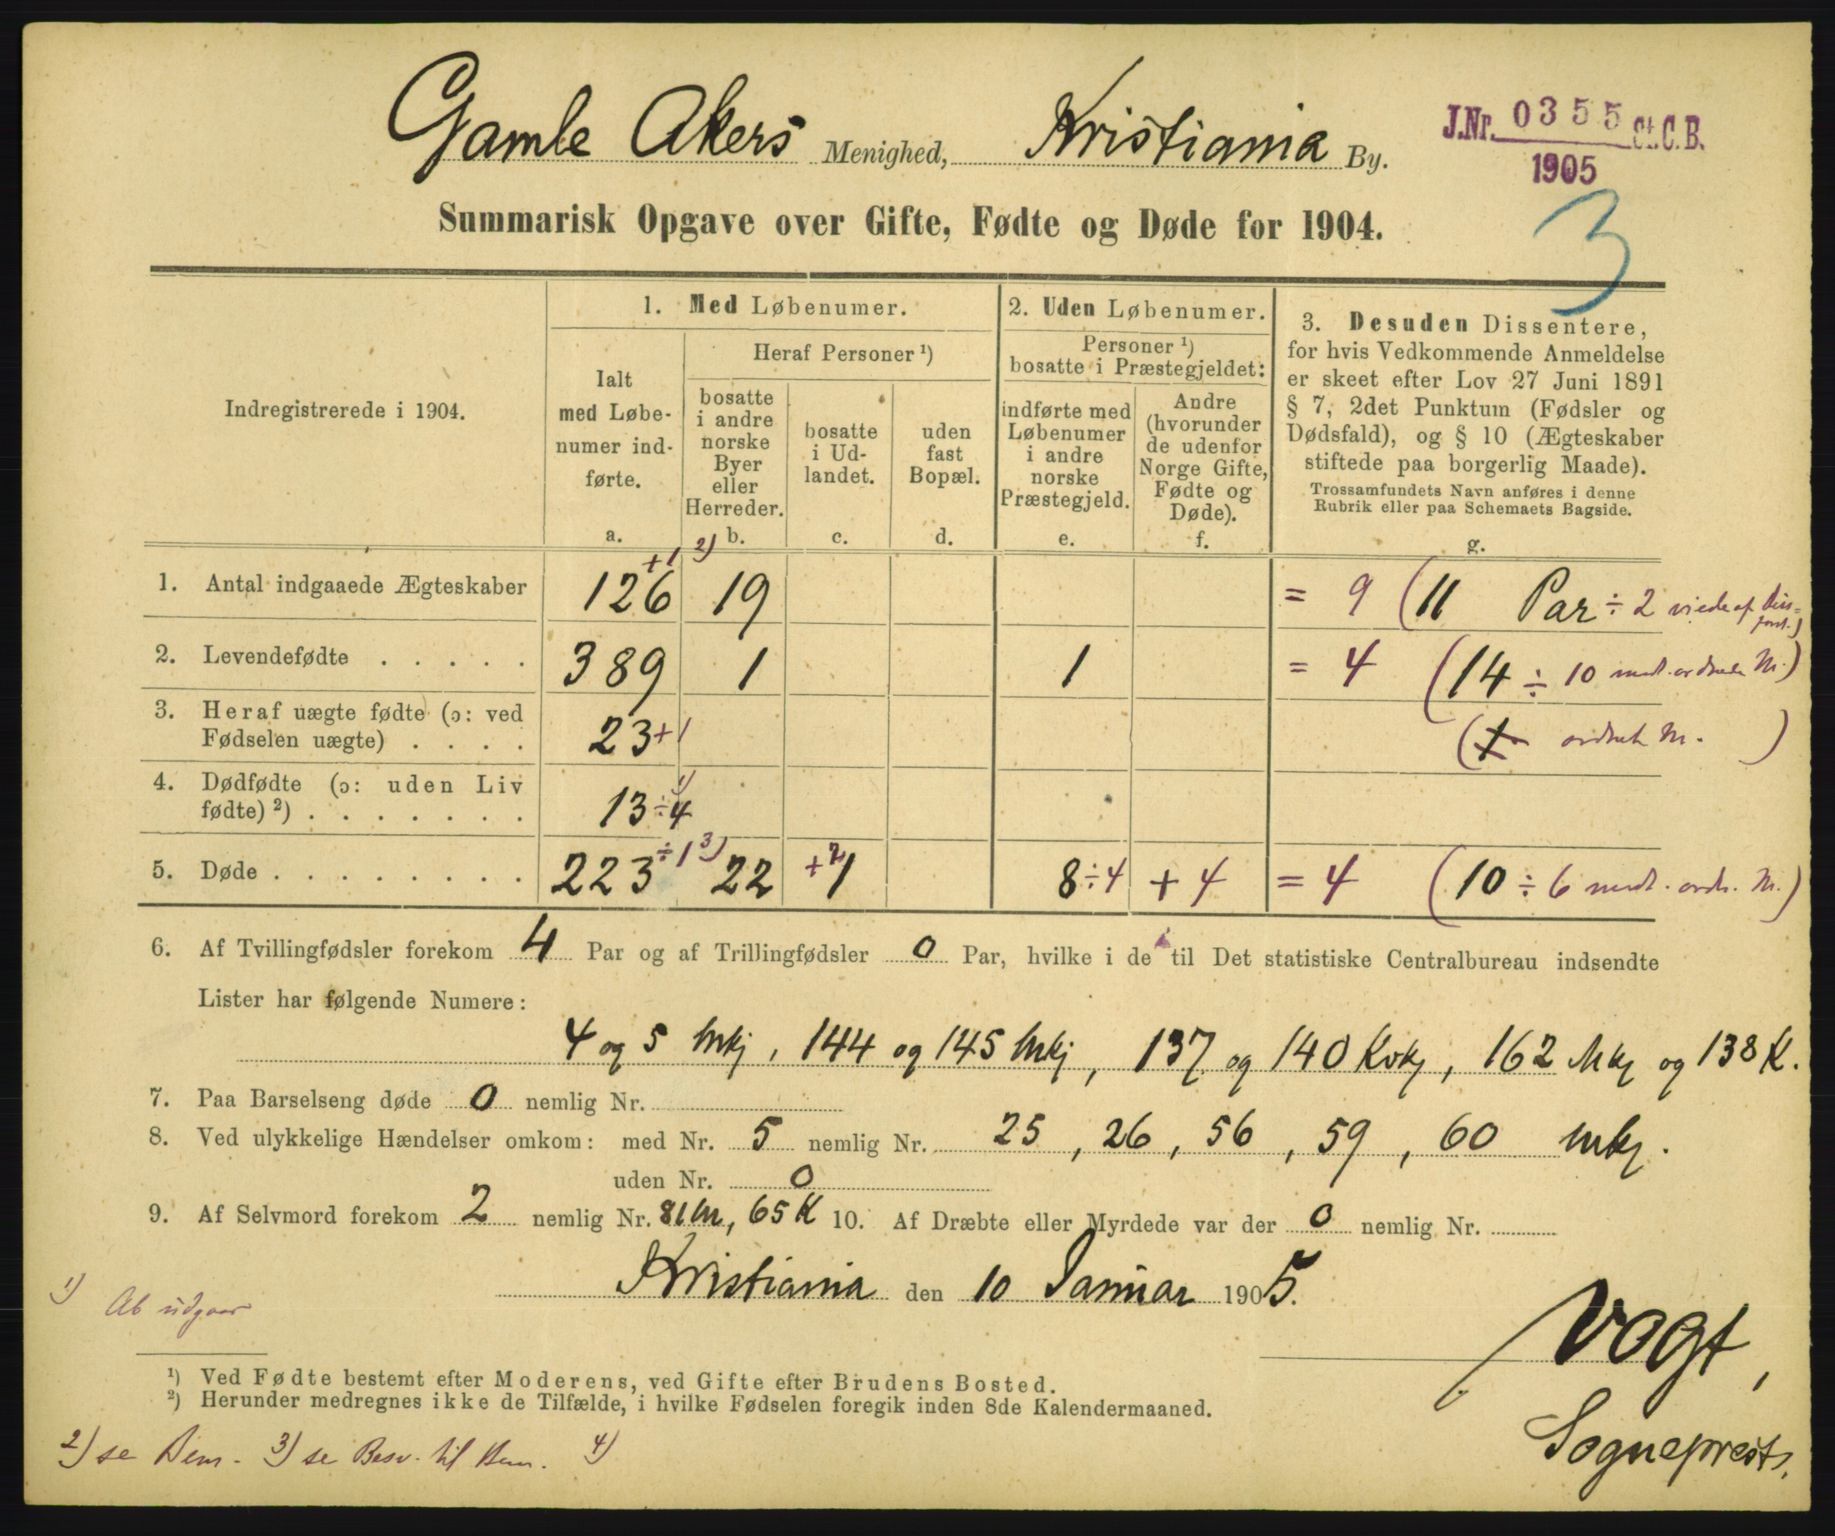 Gamle Akers Menighed, Kristiania By.
J.Nr. 0355 St.C.B.
1905
3
Summarisk Opgave over Gifte, Fødte og Døde for 1904.
Indregistrerede i 1904.
1. Med Løbenumer.
Ialt med Løbe-numer ind-førte.
a.
Heraf Personer ¹)
bosatte i andre norske Byer eller Herreder.
b.
bosatte i Ud-landet.
c.
uden fast Bopæl.
d.
2. Uden Løbenumer.
Personer ¹) bosatte i Præstegjeldet:
indførte med Løbenumer i andre norske Præstegjeld.
e.
Andre (hvorunder de udenfor Norge Gifte, Fødte og Døde).
f.
3. Desuden Dissentere,
for hvis Vedkommende Anmeldelse
er skeet efter Lov 27 Juni 1891
§ 7, 2det Punktum (Fødsler og
Dødsfald), og § 10 (Ægteskaber
stiftede paa borgerlig Maade).
Trossamfundets Navn anføres i denne
Rubrik eller paa Schemaets Bagside.
g.
1. Antal indgaaede Ægteskaber 126 +1 2) 19 = 9 (11 Par ÷ 2 viede af Diss= forst.)
2. Levendefødte . . . . . 389 1 1 = 4 (14 ÷ 10 medt. ordnede M.)
3. Heraf uægte fødte (ɔ: ved
Fødselen uægte) . . . . 23 +1 (1 ordnede M. )
4. Dødfødte (ɔ: uden Liv
fødte) ²) . . . . . . . 13 ÷4 1)
5. Døde . . . . . . . . 223 ÷1 3) 22 +2 1 8 ÷4 + 4 = 4 (10 ÷ 6 medt. ordn. M.)
6. Af Tvillingfødsler forekom 4 Par og af Trillingfødsler 0 Par, hvilke i de til Det statistiske Centralbureau indsendte
Lister har følgende Numere:
4 og 5 Mkj, 144 og 145 Mkj, 137 og 140 Kvkj, 162 Mkj og 138 K.
7. Paa Barselseng døde 0 nemlig Nr.
8. Ved ulykkelige Hændelser omkom: med Nr. 5 nemlig Nr. 25, 26, 56, 59, 60 Mkj.
uden Nr. 0
9. Af Selvmord forekom 2 nemlig Nr. 81 M, 65 K 10. Af Dræbte eller Myrdede var der 0 nemlig Nr.
Kristiania den 10 Januar 1905.
1) Ab udgaar
Vogt,
Sogneprest.
¹) Ved Fødte bestemt efter Moderens, ved Gifte efter Brudens Bosted.
²) Herunder medregnes ikke de Tilfælde, i hvilke Fødselen foregik inden 8de Kalendermaaned.
2) se Dem. 3) se Besv. til Dem. 4)